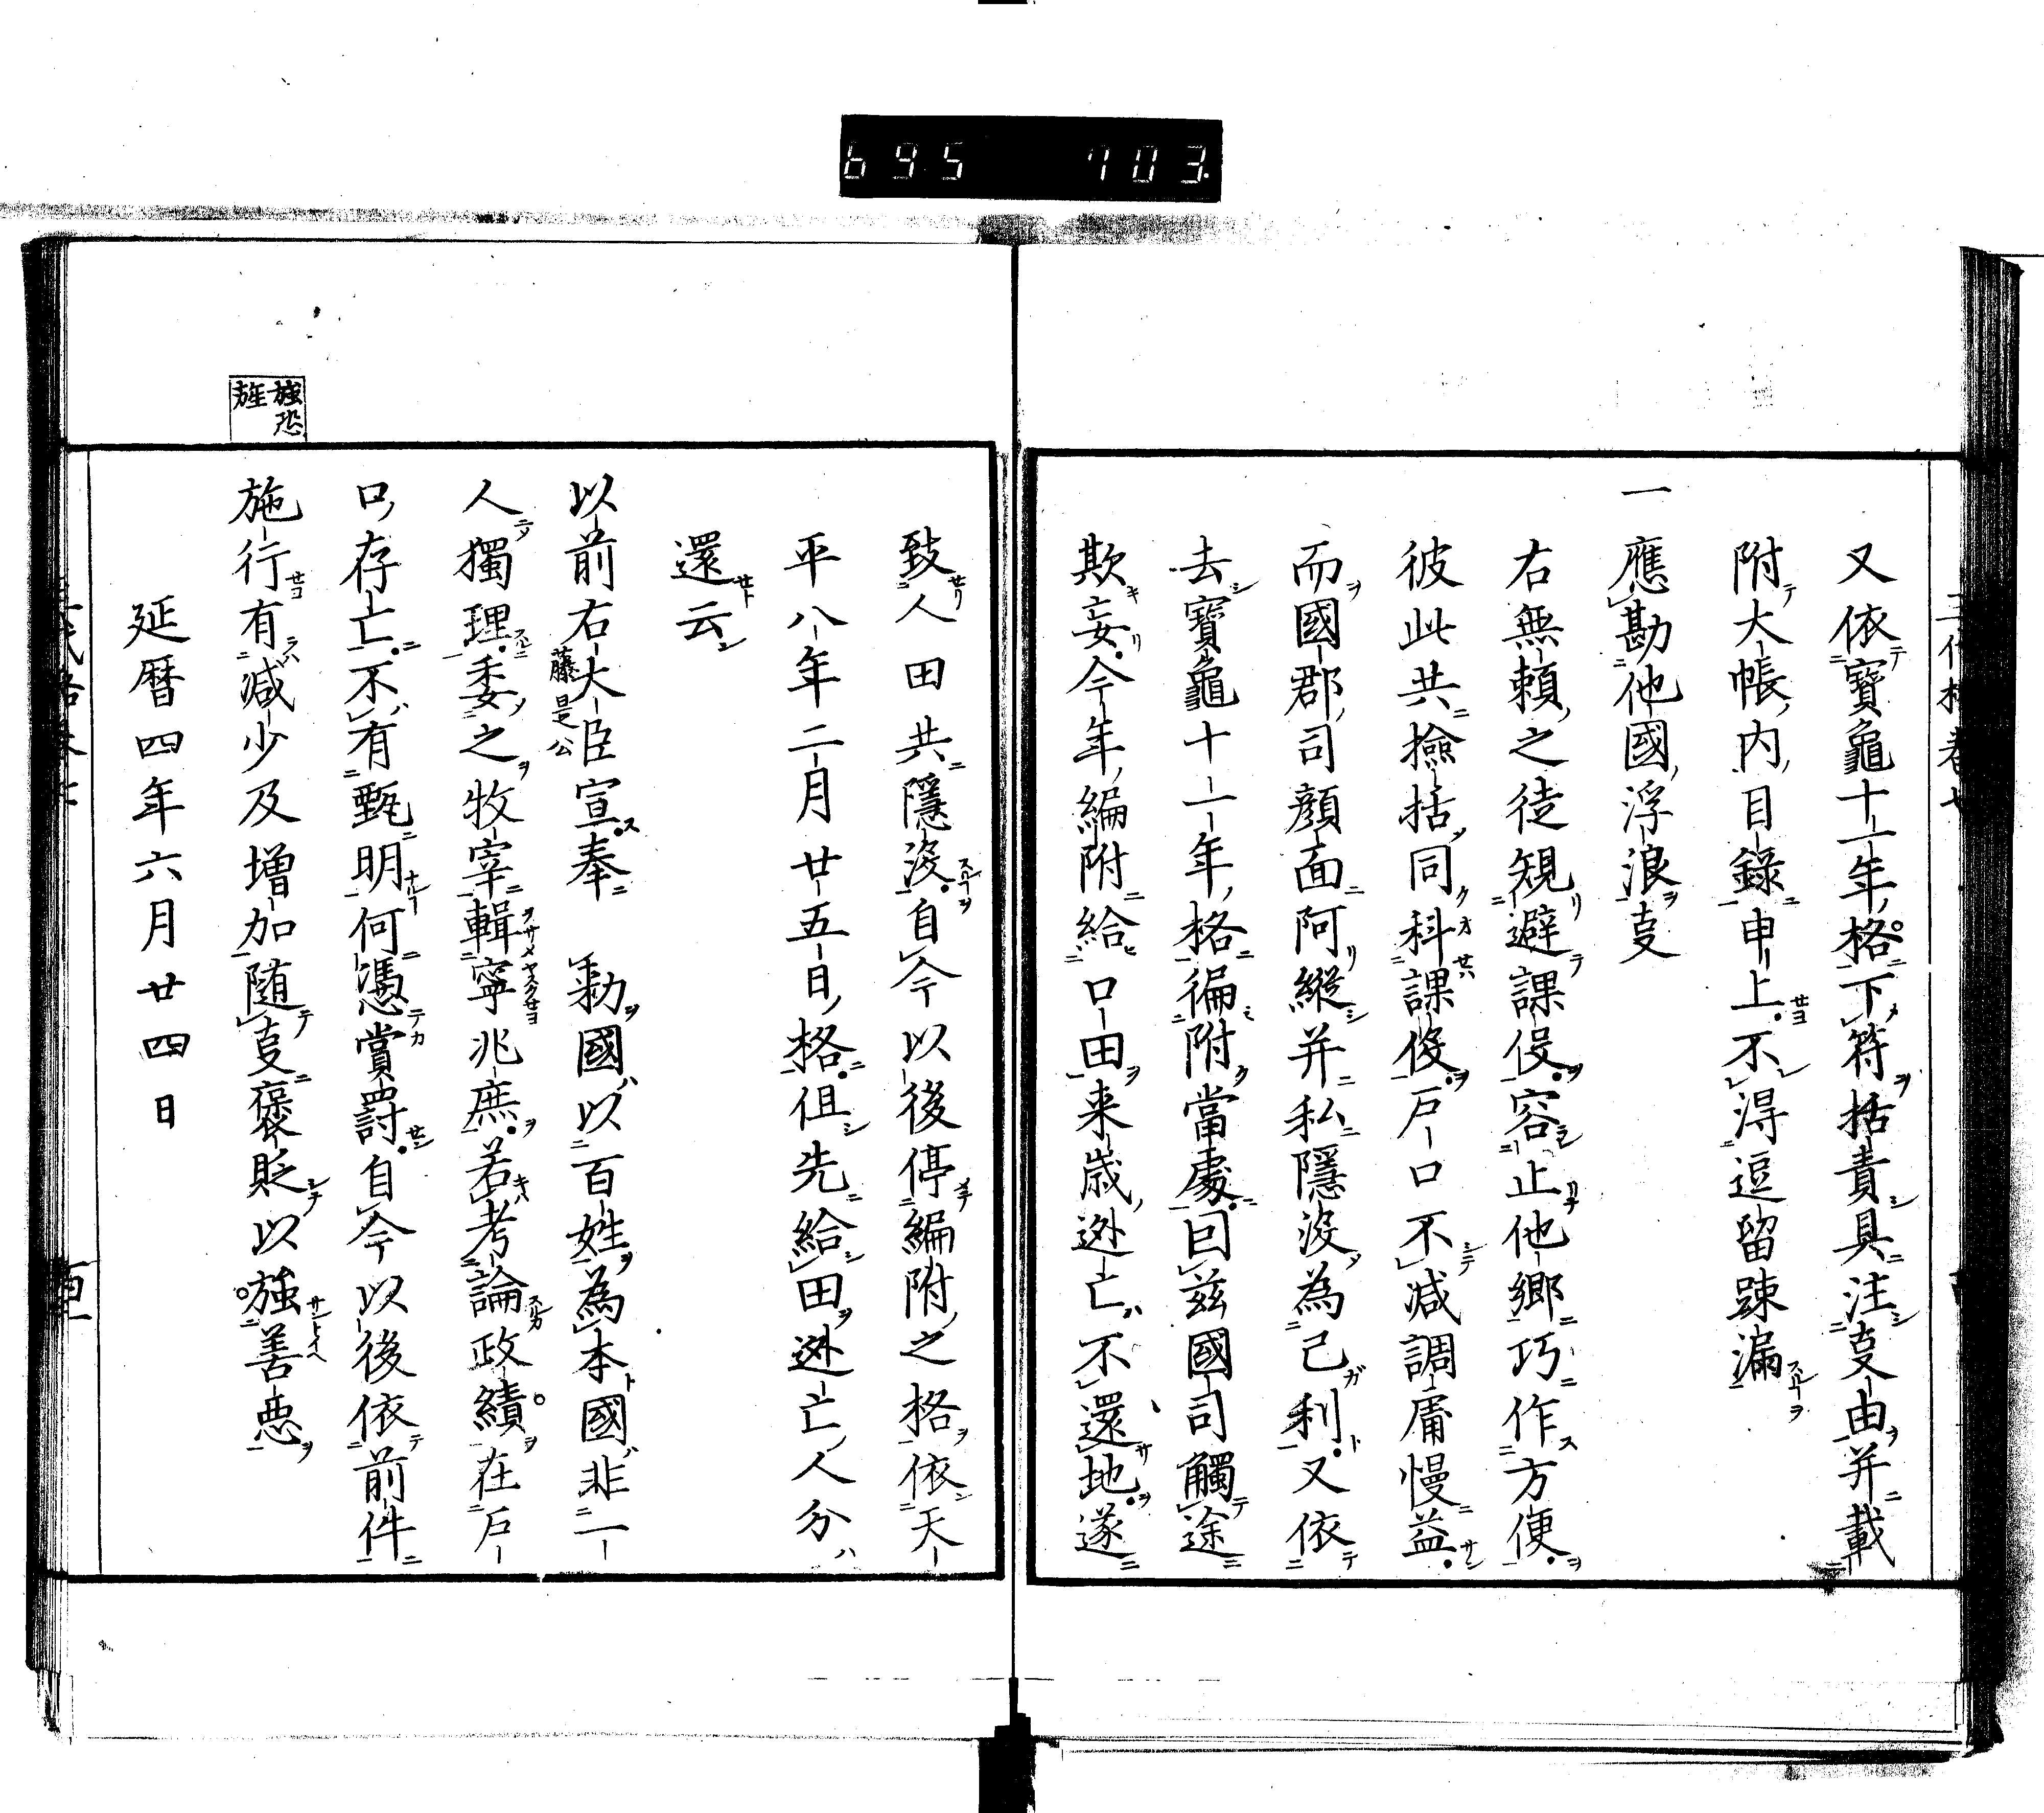 695 703
又依寶龜十一年格下符括責具注叓由并載
附大帳内目錄申上不得逗留踈漏
一應勘他國浮浪叓
右無頼之徒規避課役容止他鄉巧作方便
彼此共撿括同科課役戸口不減調庸慢益
而國郡司顔面阿縱并私隱没為己利又依
去寶龜十一年格徧附當處因兹國司觸途
欺妄今年編附給口田来歳迯亡不還地遂
致人田共隱没自今以後停編附之格依天
平八年二月廿五日格但先給田迯亡人分
還云
以前右大臣宣奉 勅國以百姓為本國非一
藤是公
人獨理委之牧宰輯寧兆庶若考論政績在戸
口存亡不有甄明何憑賞罸自今以後依前件
施行有減少及增加随叓褒貶以旌善惡
旌恐
旌
延暦四年六月廿四日